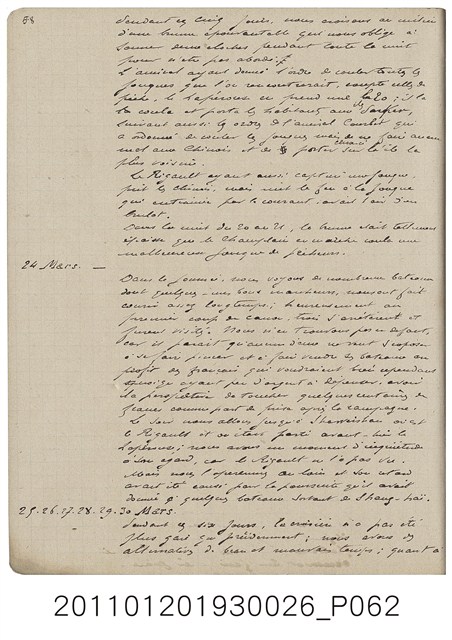 68
Pendant ces cinq jours, nous croisons au milieu
d'une brume épouvantable qui nous oblige à
sonner deux cloches pendant toute la nuit
pour n'être pas abordés.
L'amiral ayant donné l'ordre de couler toutes les
jonques que l'on rencontrerait, excepté celles de
pêche, le Lapérouse en prend une le 20; il la
coule et porte les habitants aux îles
suivant aussi les ordres de l'amiral Courbet qui
a ordonné de couler les jonques mais de ne faire aucun
mal aux Chinois et de porter ceux-ci sur l'île la
plus voisine.
Le Rigault ayant aussi capturé une jonque,
prit les chinois, mais mit le feu à la jonque
qui entrainée par le courant avait l'air d'un
brulot.
Dans la nuit du 20 au 21, la brume était tellement
épaisse que le Champlain en marche coula une
malheureuse jonque de pêcheurs.
24 Mars. —
Dans la journée, nous voyons de nombreux bateaux
dont quelques-uns bons marcheurs, nous font
courir assez longtemps; heureusement au
premier coup de canon, trois s'arrêtent et
furent visités. Nous n'en trouvons pas en défaut,
car il paraît qu'aucun d'eux ne veut s'exposer
à se faire pincer et à faire vendre ses bateaux au
profit des français qui voudraient bien cependant
ayant peu d'argent à dépenser, avoir
la perspective de toucher quelques centaines de
francs comme part de prise après la campagne.
Le soir nous allons jusqu'à où est
le Rigault et où était parti avant-hier le
Lapérouse; nous avons un moment d'inquiétude
à son égard, car le Rigault ne l'a pas vu.
Mais nous l'apercevons au loin et son retard
avait été causé par la poursuite qu'il avait
donné à quelques bateaux sortant de Shang-haï.
25.26.27.28.29.30 Mars.
Pendant ces six jours, la croisière n'a pas été
plus gaie que précédemment; nous avons des
alternatives de beau et mauvais temps; quant à
201101201930026_P062